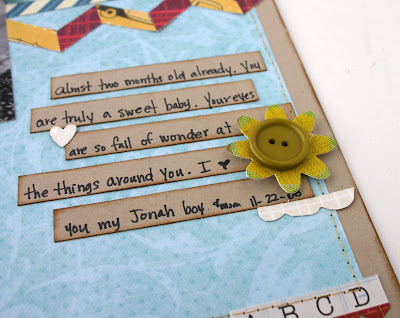 almst two months old already. You
are truly a sweet baby. Your eyes
are so full of wonder at
the things around you. I ♥
you my Jonah boy. *mom 11-22-08
A B C D